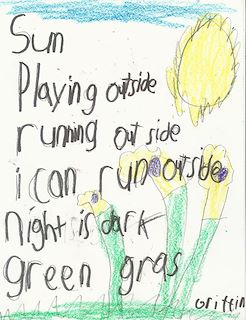 Sun
Playing outside
running out side
i can run outside
night is dark
green gras
Griffin